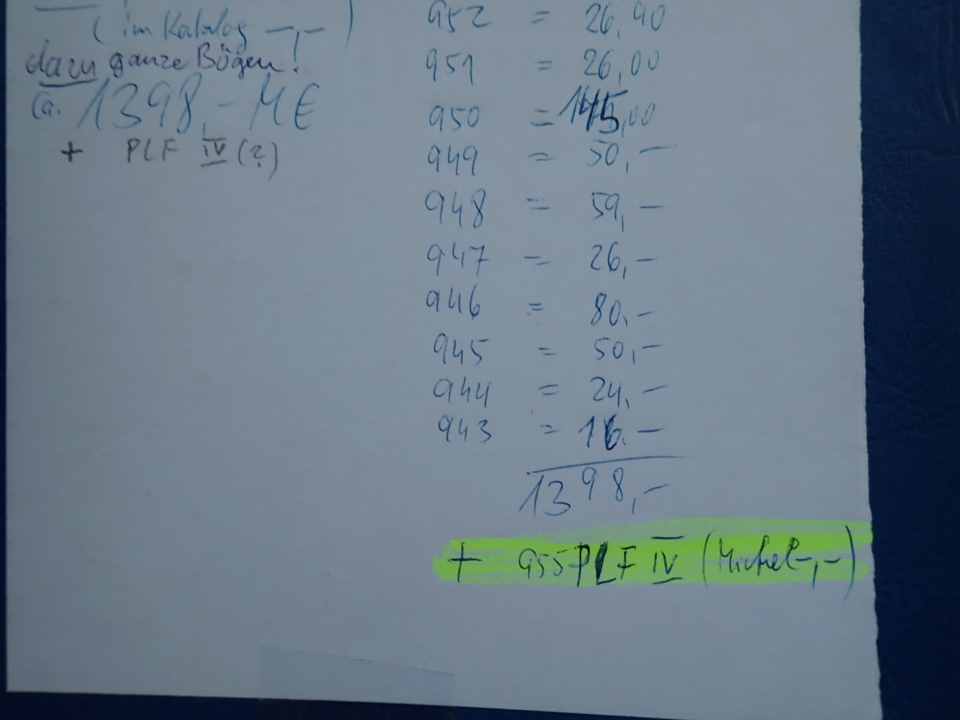 (im Katalog -,-)
dazu ganze Bögen!
ca. 1398,- M€
+ PLF IV (?)
952 = 26,90
951 = 26,00
950 = 145,00
949 = 50,-
948 = 59,-
947 = 26,-
946 = 80,-
945 = 50,-
944 = 24,-
943 = 16.-
1398,-
+ 955 PLF IV (Michel -,-)